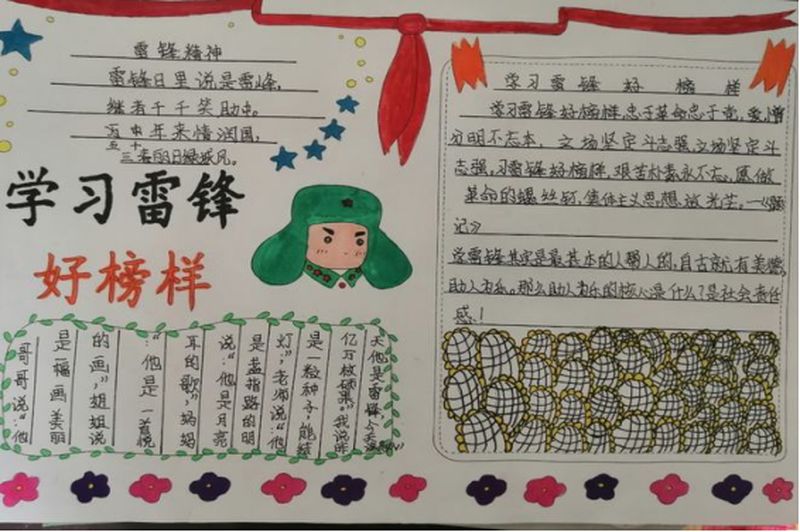 雷锋精神
雷锋日里说是雷峰,
继者千千笑助中。
年来情润国,
五十
三春的日绿城风。
学习雷锋
好榜样
哥哥说:“他
是一幅画美丽
的画”,姐姐说
:“他是一首悦
耳的歌”,妈妈
说:他是月亮
是盏指路的明
灯”,老师说“他
是一粒种子,能结
亿万枝硕果”。我说昨
天他是雷锋今天
学习雷锋好榜样
学习雷锋好榜样,忠于革命忠于党,爱憎
分明不忘本,立场坚定斗志强立场坚定斗
志强,习雷锋好榜样,艰苦朴素永不忘,愿做
革命的螺丝钉,集体主义思想放光芒。—《题
记》
学雷锋其实是最基本的人帮人的,自古就有美德,
助人为乐。那么助人为乐的核心是什么?是社会责任
感!